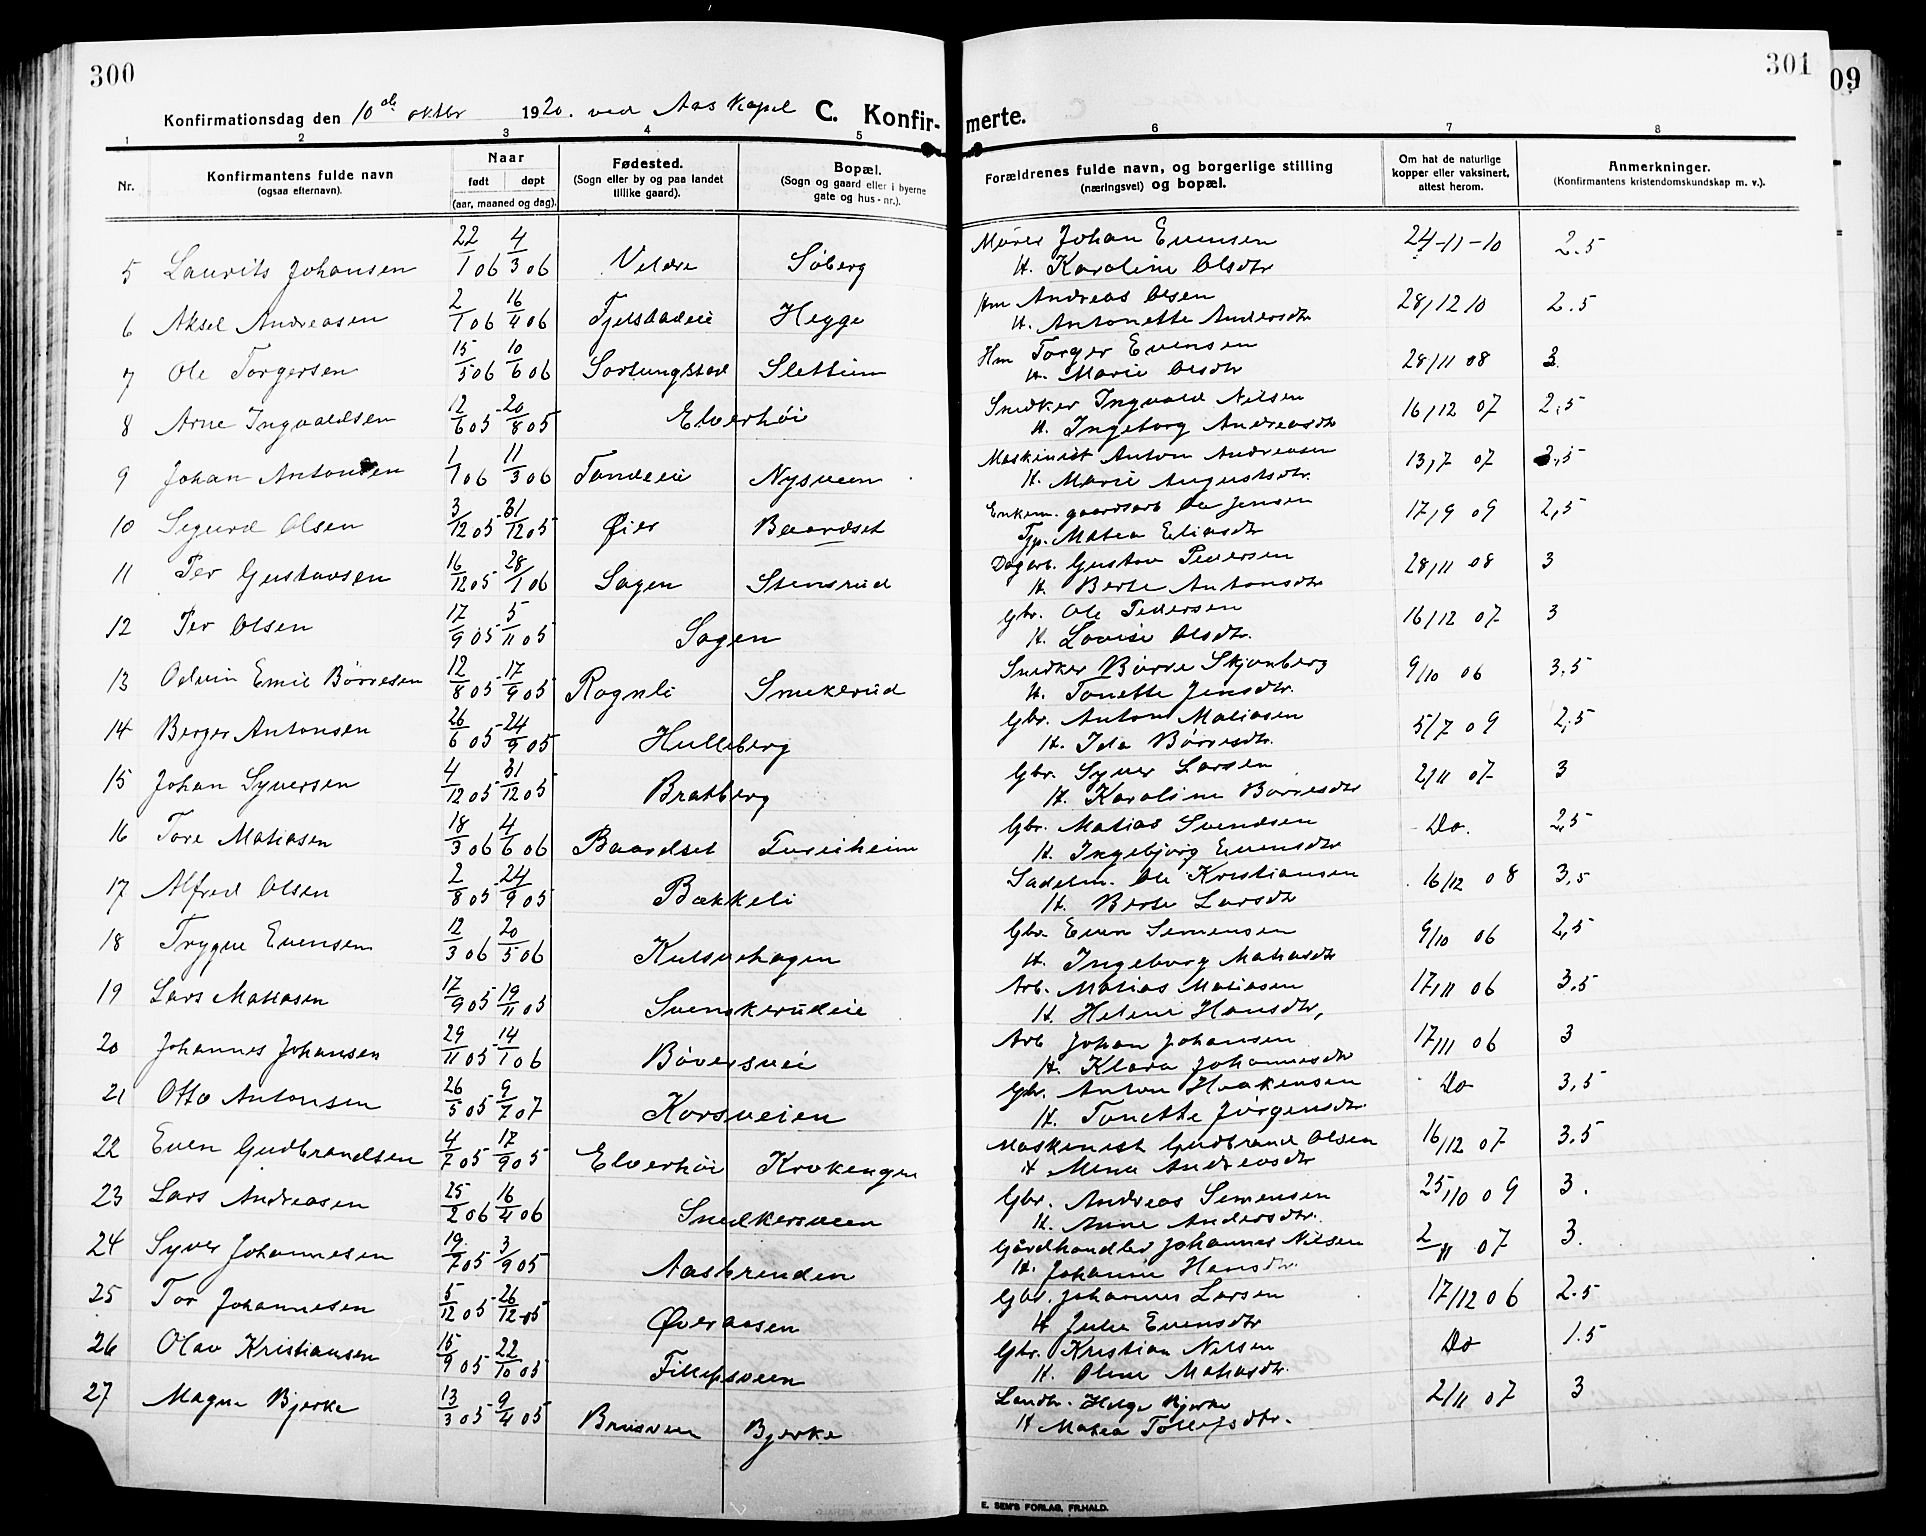 300
301
09
Konfirmationsdag den 10de oktbr 1920. ved Aas Kapel C. Konfirmerte.
1 2 3 4 5 6 7 8
Nr.
Konfirmantens fulde navn
(ogsaa efternavn).
Naar
født døpt
(aar, maaned og dag).
Fødested.
(Sogn eller by og paa landet
tillike gaard).
Bopæl.
(Sogn og gaard eller i byerne
gate og hus-nr.).
Forældrenes fulde navn, og borgerlige stilling
(næringsvei) og bopæl.
Om hat de naturlige
kopper eller vaksinert,
attest herom.
Anmerkninger.
(Konfirmantens kristendomskundskap m. v.).
5 Laurits Johansen 22/1 06 4/3 06 Veldre Söberg Mürer Johan Evensen 24-11-10 2.5
H. Karoline Olsdtr
6 Aksel Andreasen 2/1 06 16/4 06 Tjelstadeie Hegge Hm Andreas Olsen 28/12 10 2.5
H. Antonette Andersdtr
7 Ole Torgersen 15/5 06 10/6 06 Sortungstad Slettum Hm Torger Evensen 28/11 08 3
H. Marie Olsdtr
8 Arne Ingvaldsen 12/6 05 - 20/8 05 Elverhöi Snedker Ingvald Nilsen 16/12 07 2,5
H. Ingeborg Andreasdtr
9 Johan Antonsen 1/1 06 11/3 06 Tandeeie Nysveen Maskinist Anton Andreasen 13/7 07 3,5
H. Marie Augustsdtr.
10 Sigurd Olsen 3/12 05 - 31/12 05 Øier Baardset Enkem. gaardsarb Ole Jensen 17/9 09 2,5
Tjp. Matea Eliasdtr
11 Per Gustavsen 16/12 05 - 28/1 06 Sagen Stensrud Dagarb. Gustav Pedersen 28/11 08 3
H. Berte Antonsdtr
12 Per Olsen 17/9 05 - 5/11 05 Sagen Gbr. Ole Pedersen 16/12 07 3
H. Lovise Olsdtr.
13 Odvin Emil Börresen 12/8 05 - 17/9 05 Rognli Smekerud Snedker Börre Skjønberg 9/10 06 3,5
H. Tonette Jensdtr.
14 Berger Antonsen 26/6 05 - 24/9 05 Hulleberg Gbr. Anton Matiasen 5/7 09 2,5
H. Ida Börresdtr.
15 Johan Syversen 4/12 05 - 31/12 05 Bratberg Gbr. Syver Larsen 2/11 07 3
H. Karoline Börresdtr
16 Tore Matiasen 18/3 06 4/6 06 Baardset Furuheim Gbr. Matias Svendsen Do. 2,5
H. Ingebjörg Evensdtr
17 Alfred Olsen 2/8 05 - 24/9 05 Bækkeli Sadelm. Ole Kristiansen 16/12 08 3,5
H. Berte Larsdtr
18 Trygve Evensen 12/3 06 20/5 06 Kulsvehagen Gbr. Even Semensen 9/10 06 2,5
H. Ingeborg Matiasdtr
19 Lars Matiasen 17/9 05 - 19/11 05 Svenskerudeie Arb. Matias Matiasen 17/11 06 3.5
H. Helene Hansdtr,
20 Johannes Johansen 29/11 05 - 14/1 06 Böversvei Arb Johan Johansen 17/11 06 3
H. Klara Johannesdtr
21 Otto Antonsen 26/5 05 - 9/7 07 Korsveien Gbr. Anton Haakensen Do 3,5
H. Tonette Jörgensdtr
22 Even Gudbrandsen 4/7 05 - 17/9 05 Elverhöi Krokengen Maskenist Gudbrand Olsen 16/12 07 3.5
H Mina Andreasdtr
23 Lars Andreasen 25/2 06 16/4 06 Snedkersveen Gbr. Andreas Semensen 25/10 09 3.
H. Anne Andersdtr.
24 Syver Johannesen 19/7 05 - 3/9 05 Aasbrenden Gårdhandler Johannes Nilsen 2/11 07 3.
H. Johanne Hansdtr.
25 Tor Johannesen 5/12 05 - 26/12 05 Øveraasen Gbr. Johannes Larsen 17/12 06 2.5
H Julie Evensdtr
26 Olav Kristiansen 15/9 05 - 22/10 05 Fillipsveen Gbr. Kristian Nilsen Do 1.5
H. Oline Matiasdtr.
27 Magne Bjerke 13/3 05 - 9/4 05 Brusveen Bjerke Landh. Helge Bjerke 2/11 07 3
H Matea Tollefsdtr.
E. SEM'S FORLAG, FR.HALD.